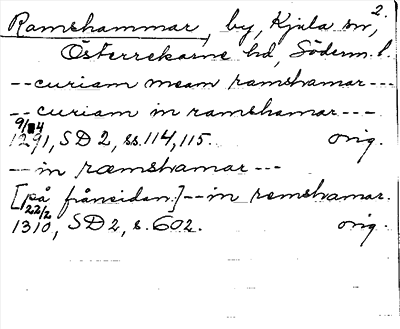 2.
Ramshammar, by, Kjula sn,
Österrekarne hd, Söderm. l.
--curiam meam ramshamar---
--curiam in ramshamar---
9/4
1291, SD 2, ss. 114, 115. orig.
--in ræmshamar---
[på frånsidan.]--in remshamar.
22/2
1310, SD 2, s. 602. orig.